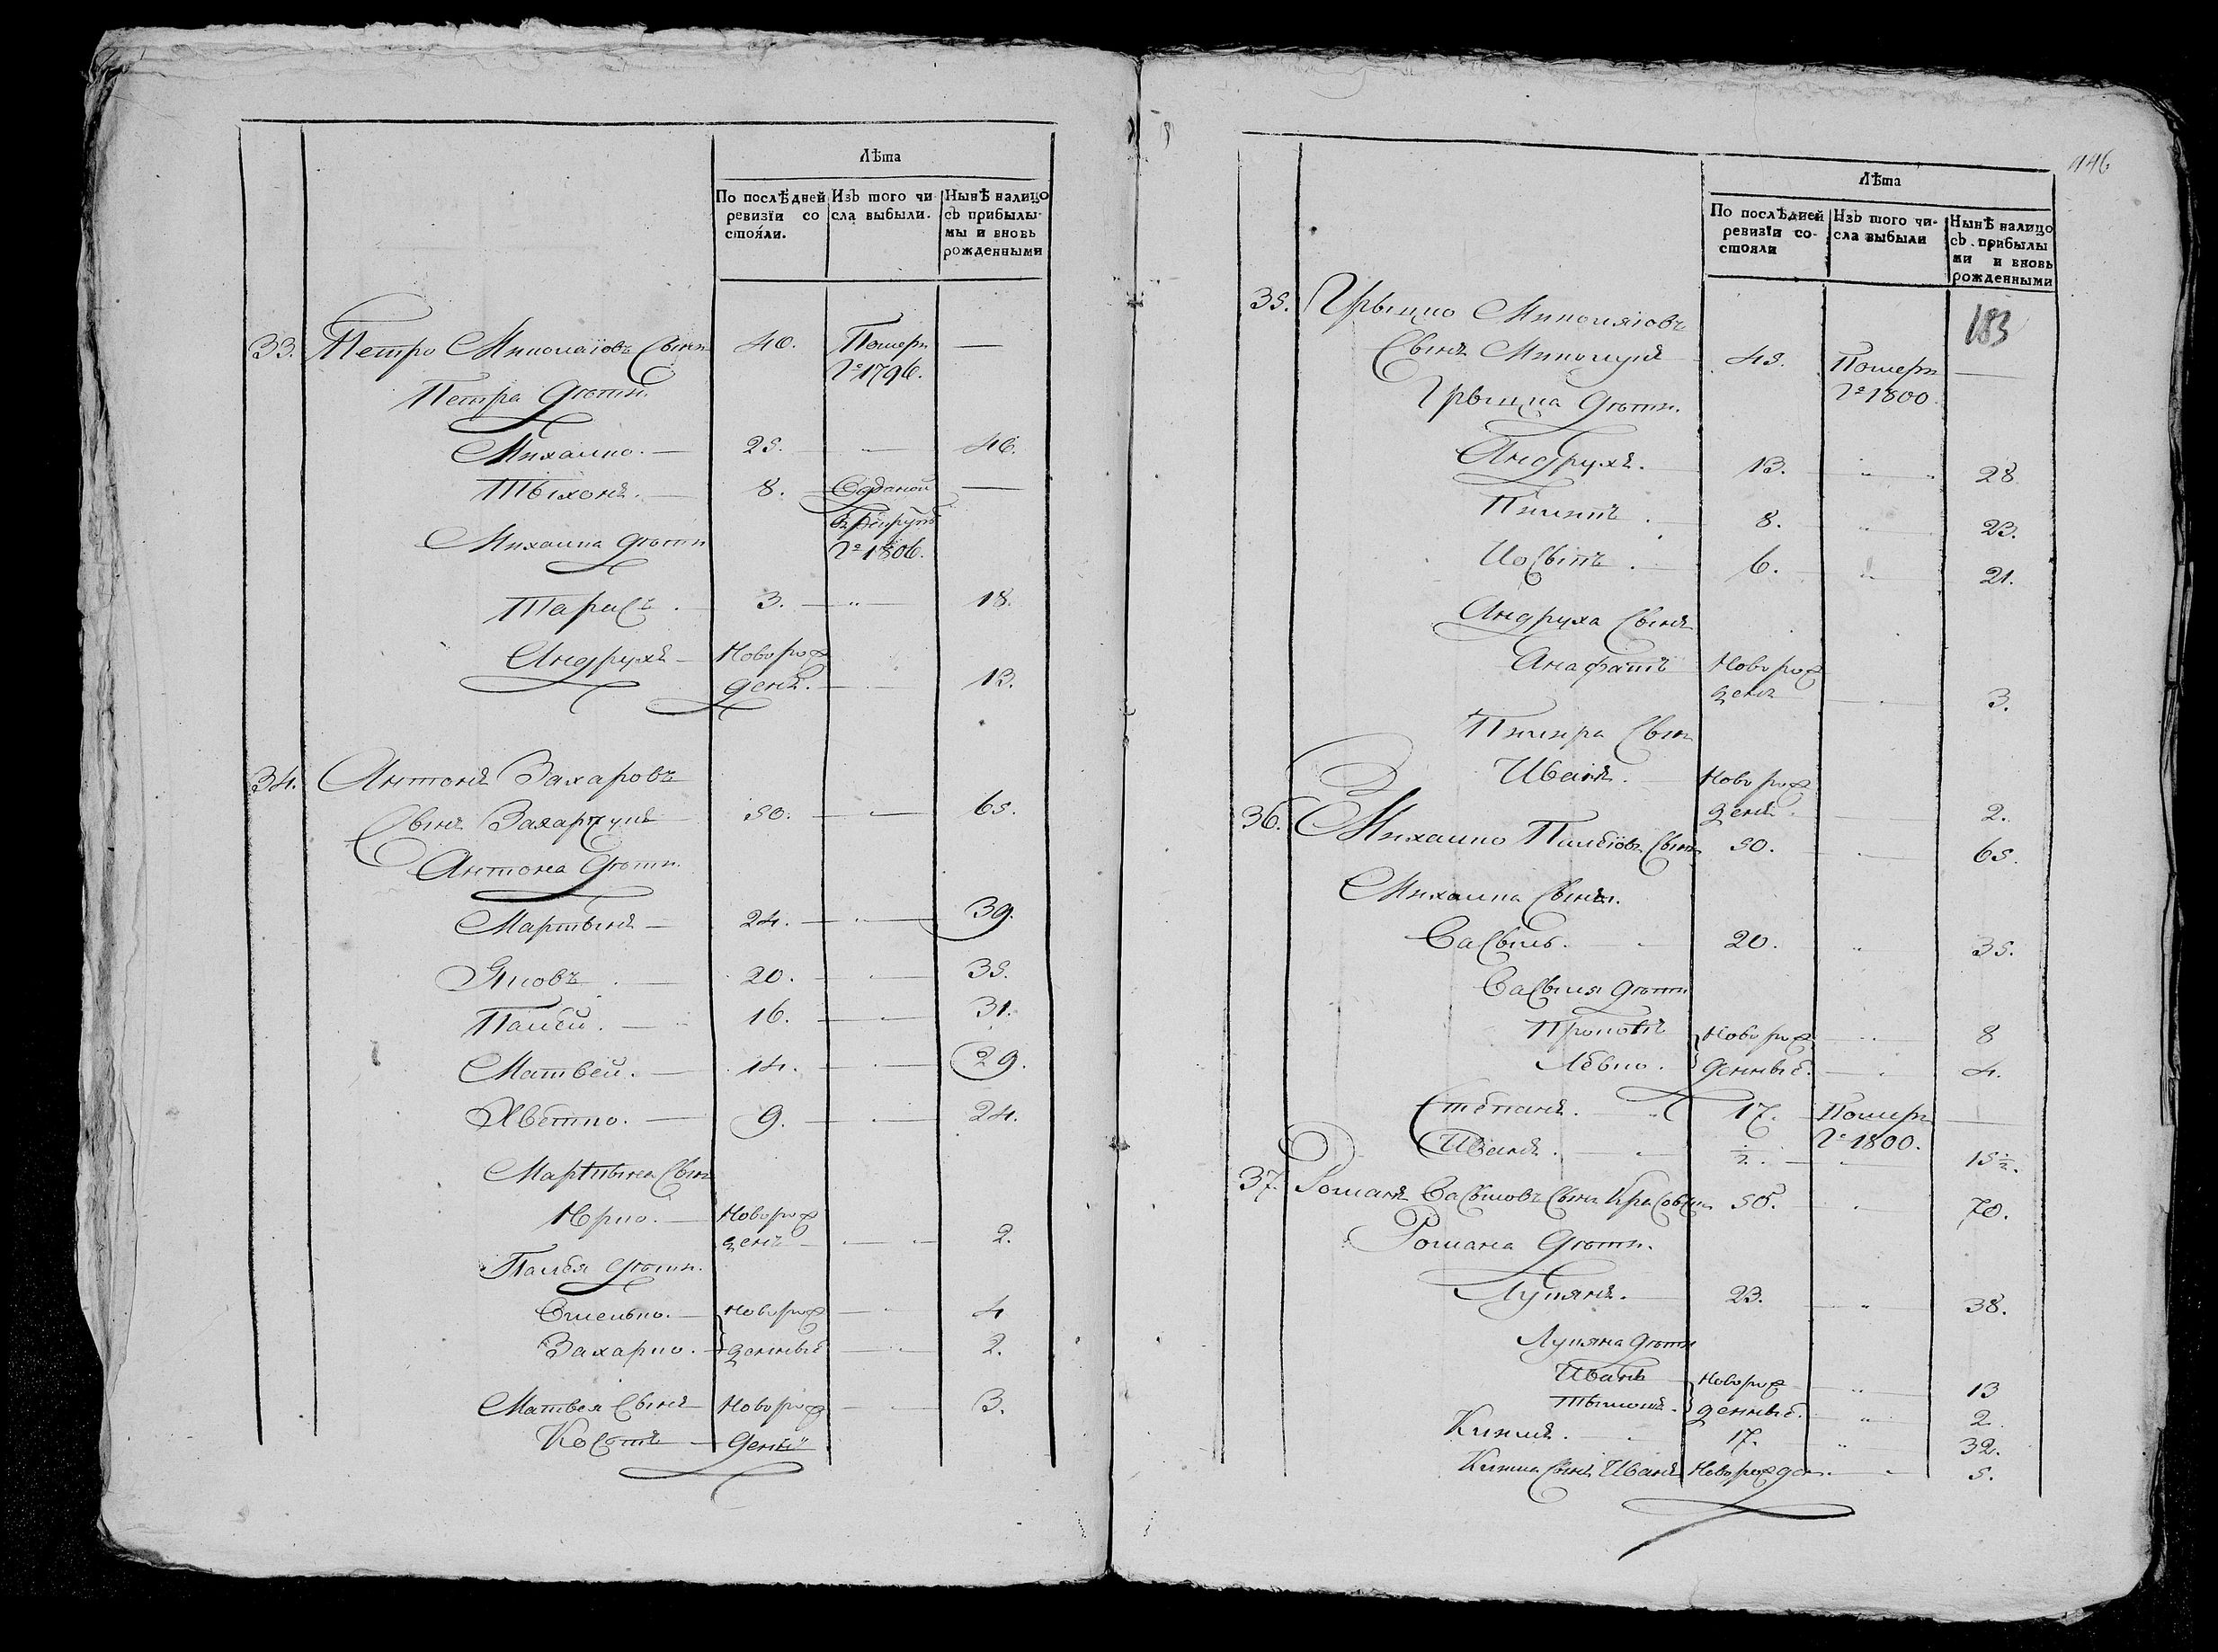 Лѣта
По послѣдней ревизїи состоя́ли.
Изъ того числа выбыли.
Нынѣ налицо съ прибылымы и вновь рожденными
33. Петро Миколаіовъ Сынъ 40. Померъ —
1796.
Петра дѣти.
Михайло. — 25. — 40.
Тыхонъ. — 8. Отданой —
въ рекруты
1806.
Михайла дѣти
Тарасъ. 3. — 18.
Андрухъ — Новорож
денъ. — 13.
34. Антонъ Захаровъ
Сынъ Захарчукъ 50. — 65.
Антона дѣти.
Мартынъ — 24. — 39.
Яковъ — 20. — 35.
Палѣй. — 16. — 31.
Матвей. — 14. — 29.
Хветко. — 9. — 24.
Мартына Сынъ
Юрко. — Новорож
денъ — 2.
Палея дѣти.
Омелько. — Новорож — 4
Захарко. — денные — 2.
Матвея Сынъ — Новорож — 3.
Костъ — денъ
146
Лѣта
По послѣдней ревизїи состояли
Изъ того числа выбыли
Нынѣ налицо съ прибылыми и вновь рожденными
183
35. Грыцко Миколаіовъ
Сынъ 45. Померъ —
1800
Грыцка дѣти.
Андрухъ. 13. — 28
Пилипъ. 8. — 23.
Іосыпъ. 6. — 21.
Андруха Сынъ
Анафатъ Новорож
денъ — 3.
Пилипа Сынъ
Иванъ. — Новорож
денъ. — 2.
36. Михайло Сынъ 50. — 65.
Михайла Сынъ.
Василь. — 20. 35.
Василя дѣти
Прокопъ Новорож — 8
Левко. денные. — 4.
Степанъ. — 17. Померъ —
1800.
Иванъ. — ½. — 15½.
37. Романъ Сынъ 50. 70.
Романа дѣти.
Лукянъ. 23. — 38.
Лукяна дѣти
Иванъ Новорож — 13
денные. — 2
17. — 32.
Сынъ Иванъ Новорожден. — 5.